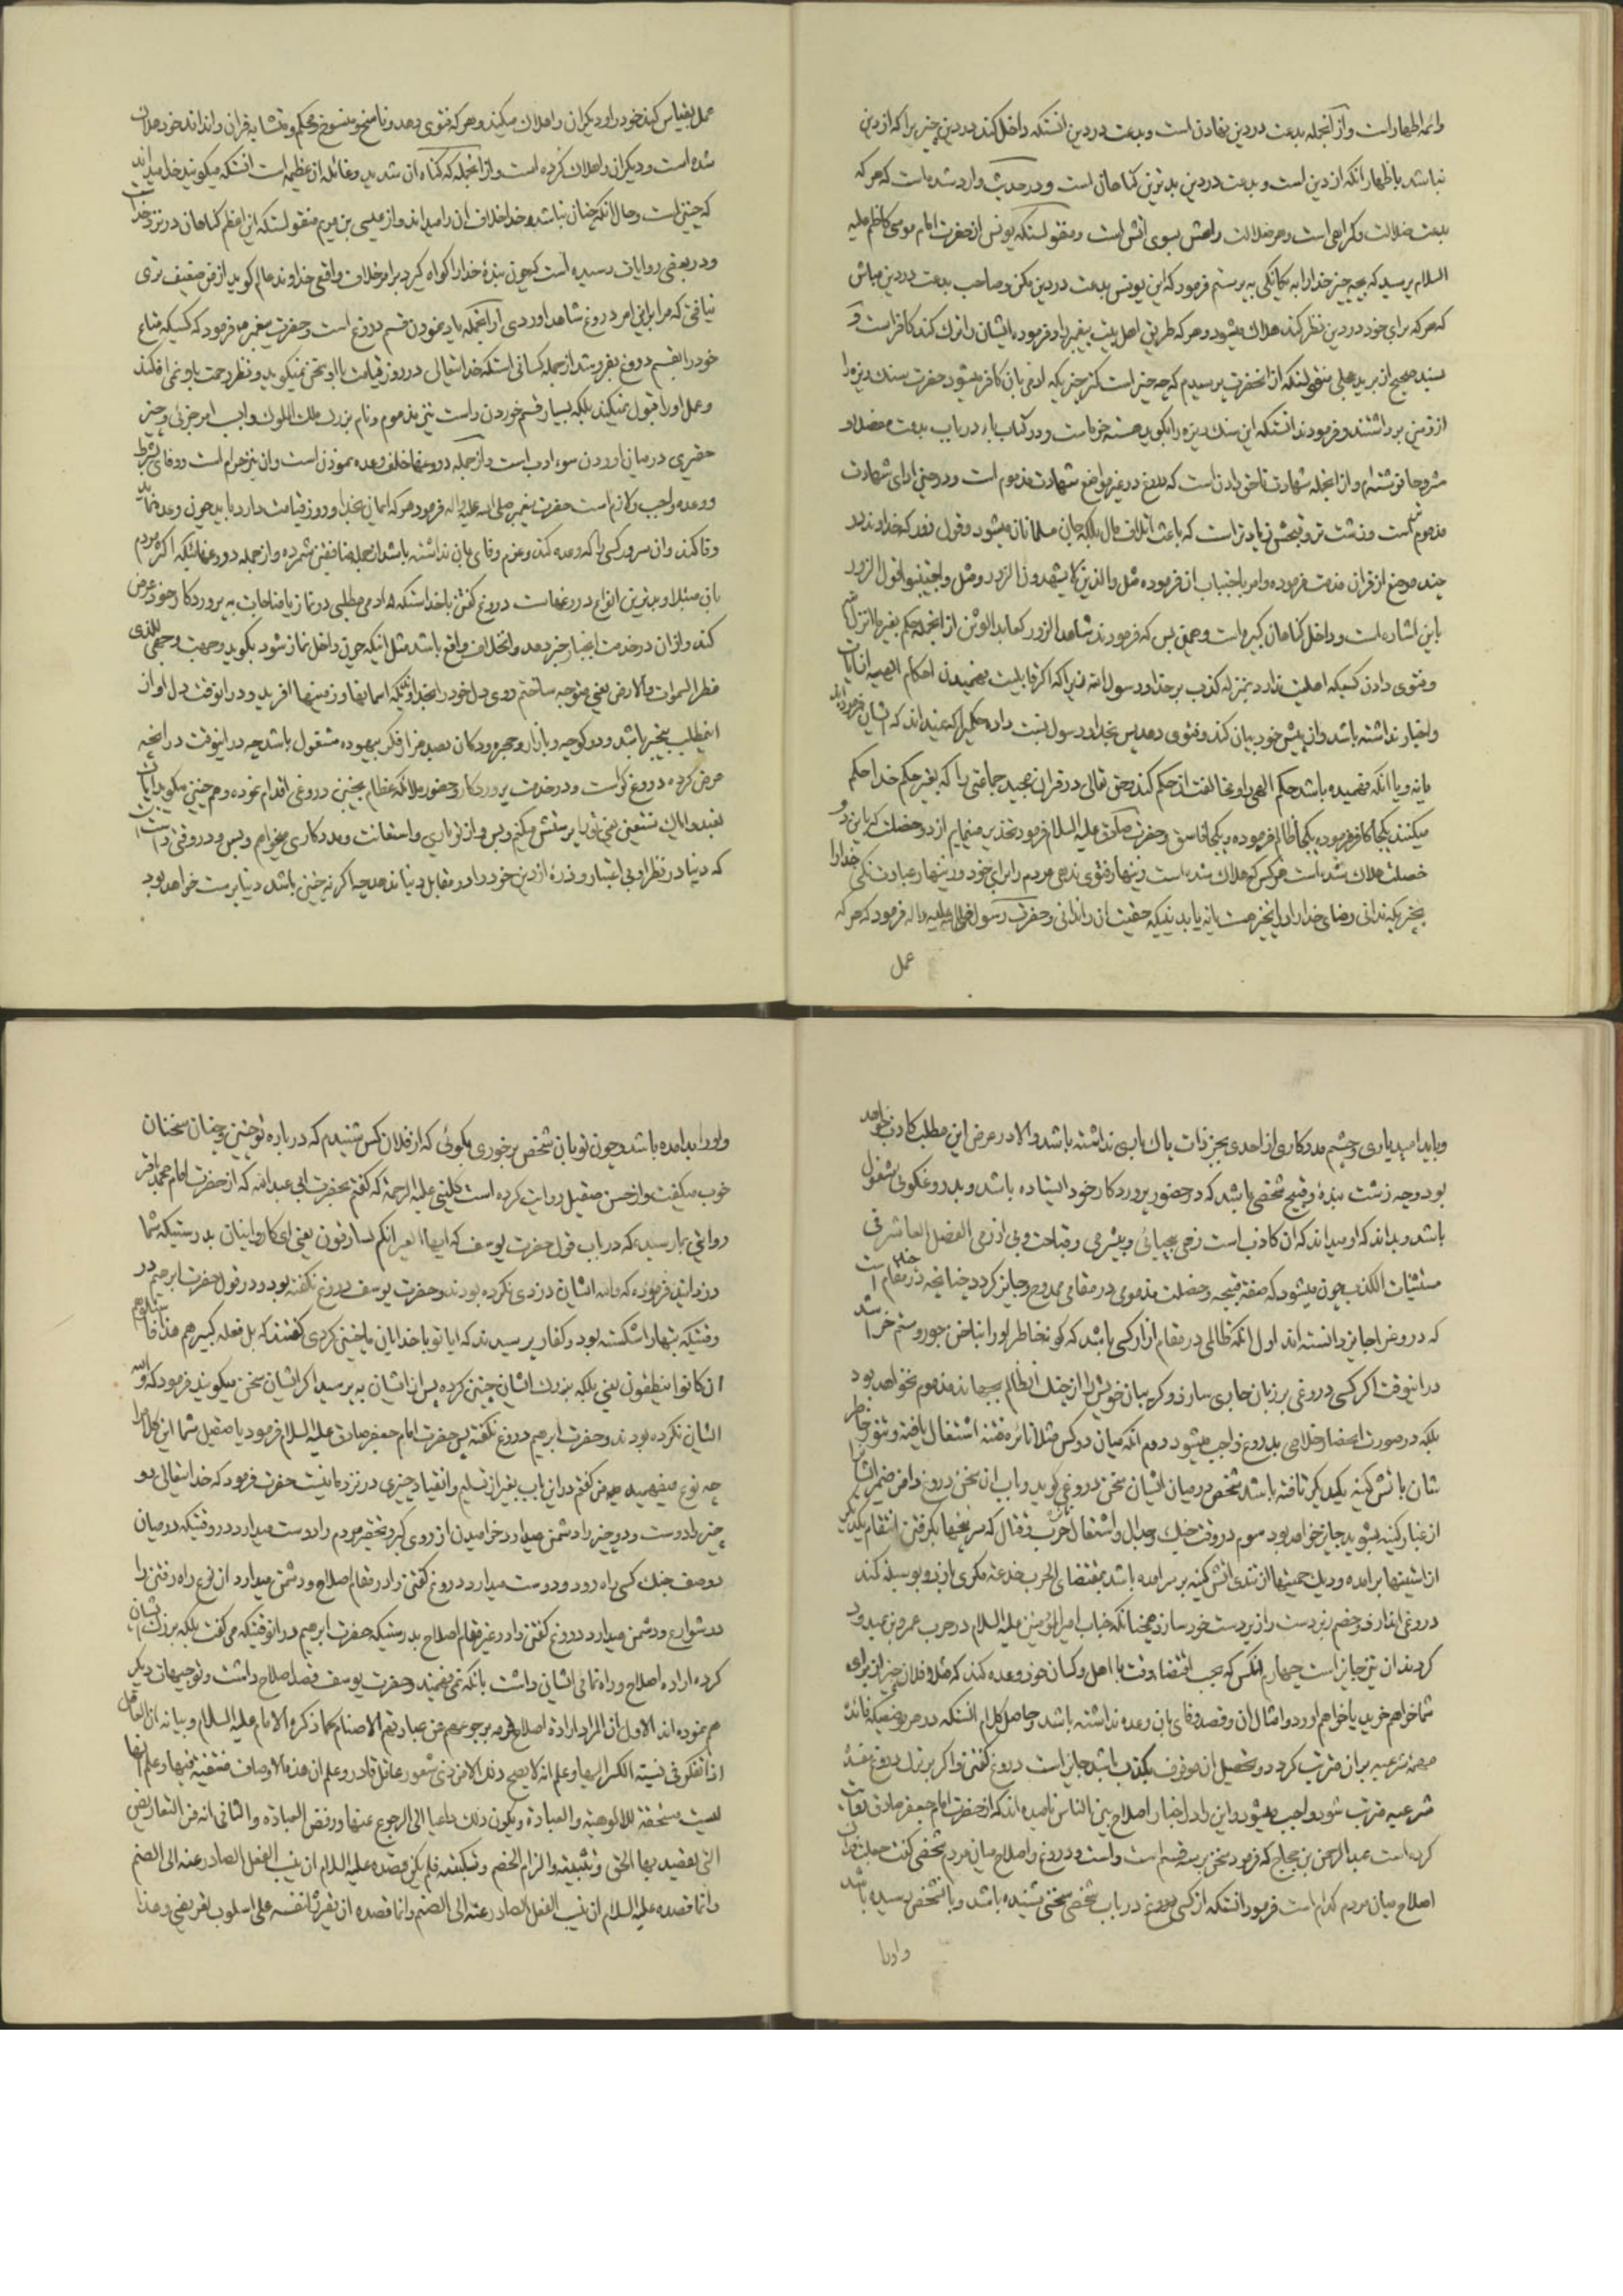 وائمه اطهار است و از آنجمله بدعت در دین نهادن است و بدعت در دین آنستکه داخل کند در دین چیزیرا که از دین
نباشد باظهار آنکه از دین است و بدعت در دین بدترین گناهان است و در حدیث وارد شده است که هر که
بدعت ضلالت و گمراهی است و هر ضلالت راهش بسوی آتش است و منقولستکه یونس از حضرت امام موسی کاظم علیه
السلام پرسید که بچه چیز خدا را به یگانگی به پرستم فرمود که ای یونس بدعت در دین مکن و صاحب بدعت در دین مباش
که هر که برای خود در دین نظر کند هلاک میشود و هر که طریق اهل بیت پیغمبر را و فرموده ایشان را ترک کند کافر است و
بسند صحیح از برید عجلی منقولستکه از آنحضرت پرسیدم که چه چیز است کمتر چیزیکه آدمی بان کافر میشود حضرت سنک ریزه را
از زمین برداشتند و فرمودند آنستکه این سنک ریزه را بگوید هسته خرما است و در کتاب در باب بدعت مفصل و
مشروحا نوشته ام و از آنجمله شهادت ناحق دادن است که دروغ در غیر مواضع شهادت مذموم است و در حین ادای شهادت
مذموم تر است و زشت تر و قبحش زیادتر است که باعث اتلاف مال بلکه جان مسلمانان میشود و قول زور که خداوند در
چند موضع از قرآن مذمت فرموده و امر باجتناب آن فرموده مثل والذین لا یشهدون الزور و مثل واجتنبوا قول الزور
باین اشاره است و داخل گناهان کبیره است و همین بس که فرمودند شاهد الزور کعابد الوثن از آنجمله حکم بغیر ما انزل الله
و فتوی دادن کسیکه اهلیت ندارد بمنزله کذب بر خدا و رسول است زیرا که اگر قابلیت فهمیدن احکام الهیه از آیات
و اخبار نداشته باشد و از پیش خود بیان کند و فتوی دهد پس بخدا و رسول نسبت داده حکمیرا که نمیداند که ایشان فرموده اند
یا نه و یا آنکه فهمیده باشد حکم الهی را و مخالفت از حکم کند و حق تعالی در قران مجید جماعتی را که بغیر حکم خدا حکم
میکنند یکجا کافر فرموده و یکجا ظالم فرموده و یکجا فاسق و حضرت صادق علیه السلام فرمود تحذیر مینمایم از دو خصلت که باین دو
خصلت هلاک شده است هر کس که هلاک شده است زینهار فتوی ندهی مردم را برای خود و زینهار عبادت نکنی خدا را
بچیزیکه ندانی رضای خدا را در انچیز هست یا نه یا بدینیکه حقیت انرا ندانی و حضرت رسول صلی الله علیه و اله فرمود که هر که
عمل
عمل بقیاس کند خود را و دیگران را هلاک میکند و هر که فتوی دهد و ناسخ و منسوخ و محکم و متشابه قران را نداند خود هلاک
شده است و دیگران را هلاک کرده است و از آنجمله که گناه آن شدید و غائله آن عظیم است آنستکه میگویند خدا میداند
که چنین است و حال آنکه چنان نباشد و خدا خلاف آن را میداند و از عیسی بن مریم منقولستکه این اعظم گناهان در نزد خدا است
و در بعضی روایات رسیده است که چون بنده خدا را گواه گیرد بر امر خلاف واقعی خداوند عالم گوید از من ضعیف تری
نیافتی که مرا براین امر دروغ شاهد اوردی و از آنجمله یاد نمودن قسم دروغ است و حضرت پیغمبر فرمود که کسیکه متاع
خود را بقسم دروغ بفروشد از جمله کسانی استکه خدایتعالی در روز قیامت با او سخن نمیگوید و نظر رحمت باو نمی افکند
و عمل او را قبول نمیکند بلکه بسیار قسم خوردن راست نیز مذموم و نام بزرک ملک الملوک واجب امر جزئی و چیز
حقیری در میان اوردن سوء ادب است و از جمله دروغها خلف وعده نمودن است و ان نیز حرام است و وفای بشرط
و وعده واجب و لازم است حضرت پیغمبر صلی الله علیه واله فرمود هر که ایمان بخدا و روز قیامت دارد باید چون وعده نماید
وفا کند و ان سرور کسی را که وعده کند و عزم وفای بان نداشته باشد از جمله منافقین شمرده و از جمله دروغهائیکه اکثر مردم
بان مبتلا و بدترین انواع دروغهاست دروغ گفتن با خداستکه ادمی مطلبی در نماز یا مناجات به پروردگار خود عرض
کند و از ان در خدمت ایشان خبر دهد و انخلاف واقع باشد مثل اینکه چون داخل نماز شود بگوید وجهت وجهی للذی
فطر السموات والارض یعنی متوجه ساختم روی دل خود را بخداوندیکه اسمانها و زمینها افرید و در انوقت دل او از
اینمطلب بیخبر باشد و در کوچه و بازار و حجره و دکان بصد هزار فکر بیهوده مشغول باشد چه در اینوقت در انچه
عرض کرده دروغگو است و در خدمت پروردگار و حضور ملائکه عظام بچنین دروغی اقدام نموده و همچنین میگوید ایاک
نعبد و ایاک نستعین یعنی تو را پرستش میکنم و بس و از تو یاری و استعانت و مددکاری میخواهم و بس و در وقتی راست است
که دنیا در نظر او بی اعتبار و ذره از دین خود را در مقابل دنیا ندهد چه اگر نه چنین باشد دنیا پرست خواهد بود
و باید امید یاری و چشم مددکاری از احدی بجز ذات پاک باری نداشته باشد و الا در عرض این مطلب کاذب خواهد
بود و چه زشت بنده و قبیح شخصی باشد که در حضور پروردگار خود ایستاده باشد و بدروغگوئی مشغول
باشد و بداند که او میداند که ان کاذب است زهی بیحیائی و بیشرمی و قباحت و بی ازرمی الفصل العاشر فی
مستثنیات الکذب چون میشود که صفته قبیحه و خصلت مذموی در مقامی ممدوح و جایز گردد چنانچه در مقام است
که دروغ را جایز دانسته اند اول آنکه ظالمی در مقام ازار کسی باشد که گو بخاطر او را بناخن جور و ستم خراشد
در اینوقت اگر کسی دروغی بر زبان جاری سازد و گریبان خویش را از چنک انظالم برهاند مذموم نخواهد بود
بلکه در صورت انحصار خلاصی بدروغ واجب میشود دوم آنکه میان دو کس مثلا نائره فتنه اشتعال یافته و تنور خاطر
شان باتش کینه یکدیگر تافته باشد شخصی در میان ایشان سخن دروغی گوید و باب ان سخن دروغ دامن ضمیر ایشانرا
از غبار کینه بشوید جایز خواهد بود سوم در وقت جنک و جدال و اشتعال نائره حرب و قتال که سر پنجها بگرفتن انتقام یکدیگر
از استینها برامده و دیک حمیتها از تندی اتش کینه بر سر امده باشد بمقتضای الحرب خدعه مکری اندو بوسیله کند
دروغی اغاز و خصم زبردست را زیردست خود سازد همچنانکه جناب امیرالمؤمنین علیه السلام در حرب عمرو بن عبدود
کردند ان نیز جایز است چهارم آنکس که بحسب اقتضاء وقت با اهل و کسان خود وعده کند که مثلا فلان چیز از برای
شما خواهم خرید یا خواهم اورد و امثال ان و قصد وفای بان وعده نداشته باشد و حاصل کلام انستکه در هر موضعیکه فائده
مهمه شرعیه بران مترتب گردد و تحصیل ان موقوف بکذب باشد جایز است دروغ گفتن و اگر بر ترک دروغ مفسده
شرعیه مترتب شود واجب میشود و این را در اخبار اصلاح بین الناس نامیده اند که از حضرت امام جعفر صادق روایت
کرده است عبدالرحمن بن حجاج که فرمود سخن بر سه قسم است راست و دروغ و اصلاح میان مردم شخصی گفت جعلت فداک
اصلاح میان مردم کدام است فرمود انستکه از کسی دروغ در باب شخصی سخنی شنیده باشد و بانشخص رسیده باشد
و او را
و او را بد امده باشد و چون تو بان شخص برخوری بگوئی که از فلان کس شنیدم که در باره تو چنین و چنان سخنان
خوب میگفت و از حسن صیقل روایت کرده است کلینی علیه الرحمة که گفتم بحضرت ابی عبدالله که از حضرت امام محمد باقر
روایتی بما رسیده که در باب قول حضرت یوسف که ایتها العیر انکم لسارقون یعنی ای کاروانیان بدرستیکه شما
دزدانید فرموده که والله ایشان دزدی نکرده بودند و حضرت یوسف دروغ نگفته بود و در قول حضرت ابرهیم در
وقتیکه بتها را شکسته بود و کفار پرسیدند که ایا تو با خدایان ما چنین کردی گفتند که بل فعله کبیرهم هذا فاسئلوهم
ان کانوا ینطقون یعنی بلکه بزرک ایشان چنین کرده پس از ایشان به پرسید اگر ایشان سخن میگویند فرمود که والله
ایشان نکرده بودند و حضرت ابرهیم دروغ نگفته پس حضرت امام جعفر صادق علیه السلام فرمود یا صیقل شما این کلام را
چه نوع میفهمید من گفتم در این باب بغیر از تسلیم و انقیاد چیزی در نزد ما نیست حضرت فرمود که خدایتعالی دو
چیز را دوست و دو چیز را دشمن میدارد خرامیدن از روی کبر و تحقیر مردم را دوست میدارد در وقتیکه در میان
دو صف جنک کسی راه رود و دوست میدارد دروغ گفتن را در مقام اصلاح و دشمن میدارد از نوع راه رفتن را
در شوارع و دشمن میدارد دروغ گفتن را در غیر مقام اصلاح بدرستیکه حضرت ابرهیم در انوقتیکه می گفت بلکه بزرک ایشان
کرده اراده اصلاح و راه نمائی ایشان داشت بانکه نمی فهمیدند و حضرت یوسف قصد اصلاح داشت و توجیهات دیگر
هم نموده اند الاول ان المراد ارادة اصلاح قومه برجوعهم عن عبادتهم الاصنام کما ذکره الامام علیه السلام و بیانه ان العاقل
اذا تفکر فی نسبة الکسر الیها و علم انه لا یصح ذلک الا من ذی شعور عاقل قادر و علم ان هذه الاوصاف منتفیة فیها و علم انها
لیست مستحقة للالوهیة والعبادة و یکون ذلک داعیا الی الرجوع عنها و رفض العبادة والثانی انه من التعاریض
التی یقصد بها الحق و تثبیته و الزام الخصم و تبکیته فلم یکن قصده علیه السلام ان ینسب الفعل الصادر عنه الی الصنم
وانما قصده علیه السلام ان ینسب الفعل الصادر عنه الی الصنم وانما قصده ان یقرره لنفسه علی اسلوب تعریضی و هذا